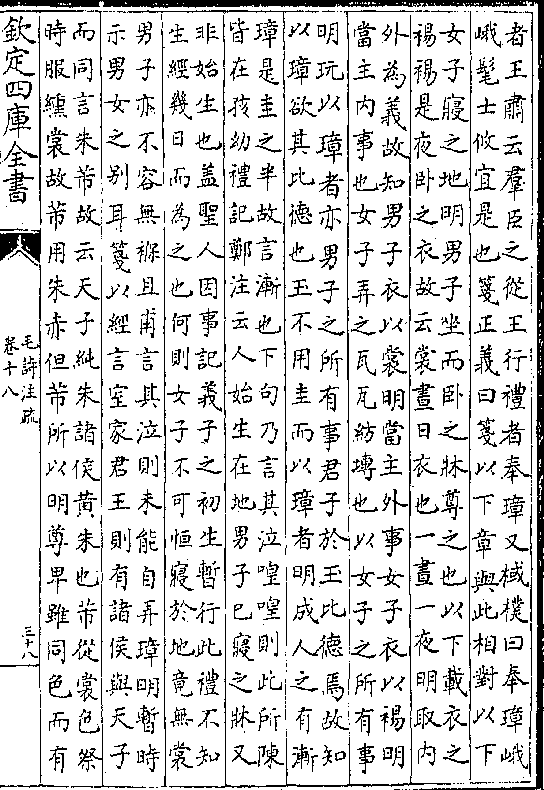 者王肅云羣臣之從王行禮者奉璋又棫樸曰奉璋峨
峨髦士攸宜是也箋正義曰箋以下章與此相對以下
女子寢之地明男子坐而卧之牀尊之也以下載衣之
裼裼是夜卧之衣故云裳晝日衣也一晝一夜明取内
外為義故知男子衣以裳明當主外事女子衣以裼明
當主内事也女子弄之瓦瓦紡塼也以女子之所有事
明玩以璋者亦男子之所有事君子於玉比德焉故知
以璋欲其比德也玉不用圭而以璋者明成人之有漸
璋是圭之半故言漸也下句乃言其泣喤喤則此所陳
皆在孩幼禮記鄭注云人始生在地男子已寢之牀又
非始生也盖聖人因事記義子之初生暫行此禮不知
生經幾日而為之也何則女子不可恒寢於地竟無裳
男子亦不容無裼且甫言其泣則未能自弄璋明暫時
示男女之别耳箋以經言室家君王則有諸侯與天子
而同言朱芾故云天子純朱諸侯黄朱也芾從裳色祭
時服纁裳故芾用朱赤但芾所以明尊卑雖同色而有
欽定四庫全書
毛詩注疏
卷十八
三十八